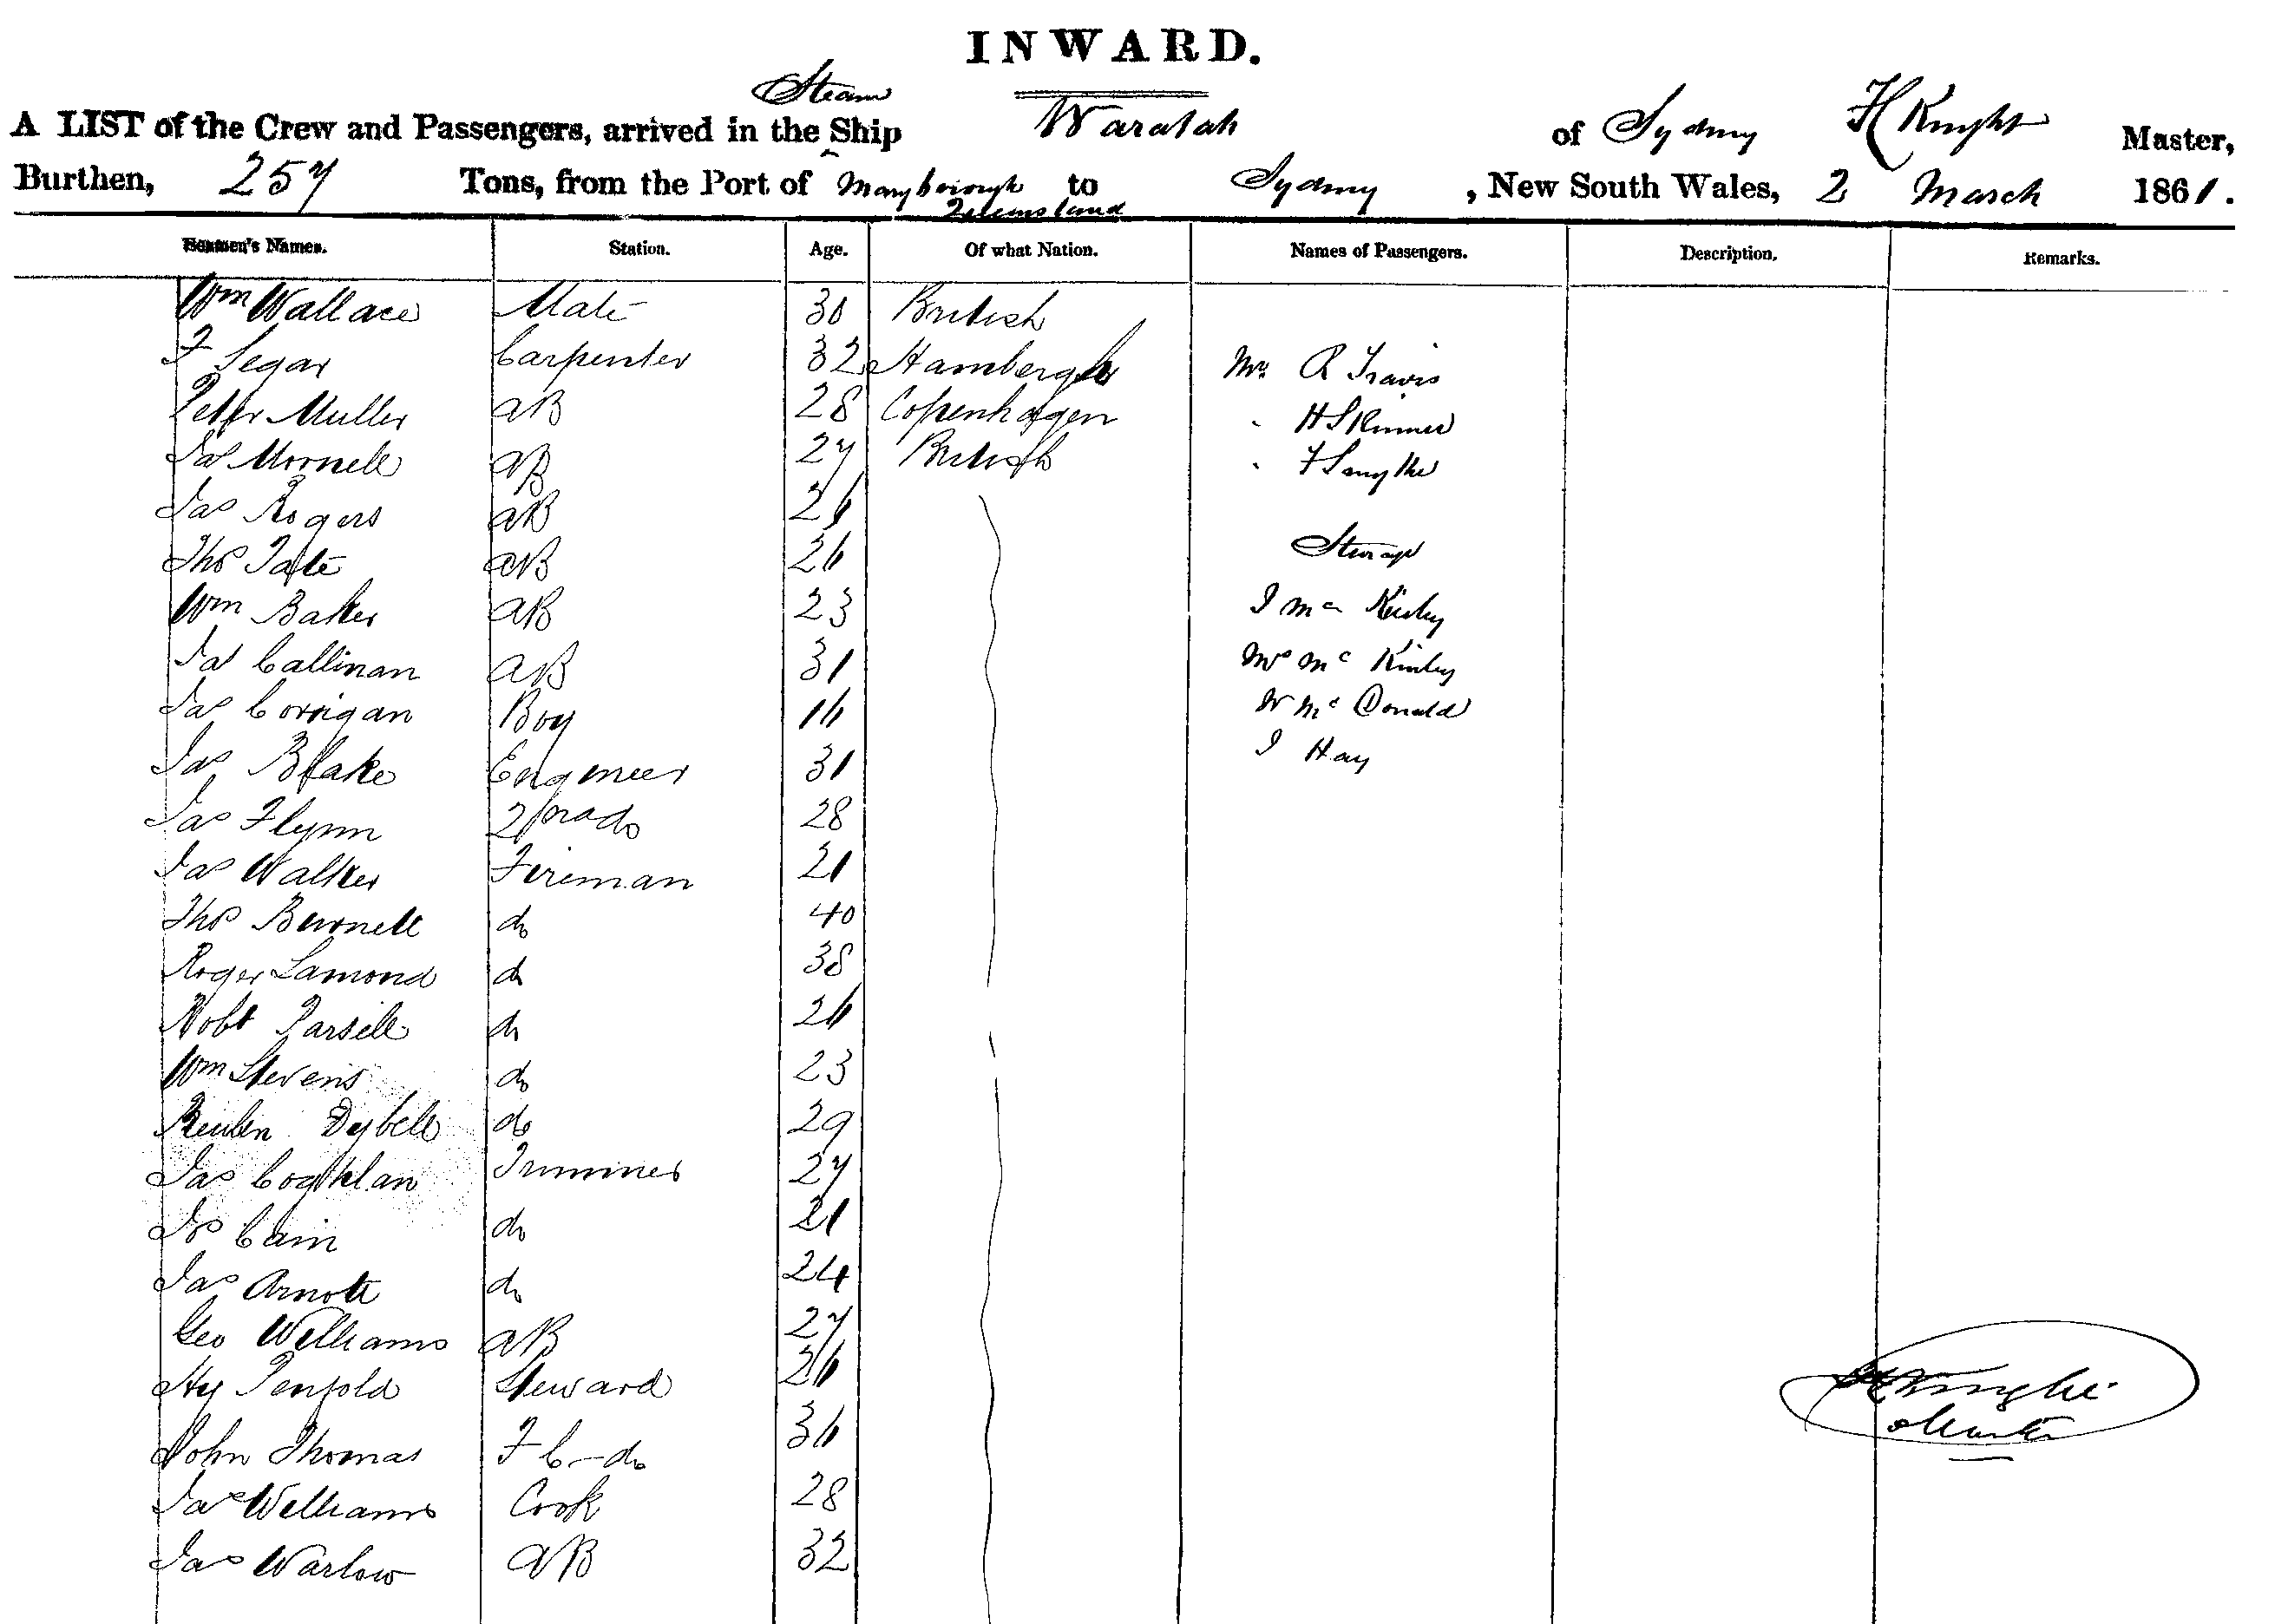 INWARD.
Steam
A LIST of the Crew and Passengers, arrived in the Ship Waratah of Sydney H Knight Master,
Burthen, 257 Tons, from the Port of Maryborough to Sydney, New South Wales, 2 March 1861.
Queensland
Seamen's Names. Station. Age. Of what Nation. Names of Passengers. Description. Remarks.
Wm Wallace Mate 30 British
F Segar Carpenter 32 Hamberg Mr R Travis
Peter Muller AB 28 Copenhagen " H Skinner
Jas Mornell AB 27 British " F Smythe
Jas Rogers AB 26
Thos Tate AB 26 Steerage
Wm Baker AB 23 J Mc Kinley
Jas Callinan AB 31 Mrs Mc Kinley
Jas Corrigan Boy 16 W Mc Donald
Jas Blake Engineer 31 J Hay
Jas Flynn 2nd do 28
Jas Walker Fireman 21
Thos Burnell do 40
Roger Lamond do 38
Robt Parsell do 26
Wm Stevens do 23
Reuben Dybell do 29
Jas Coghlan Trimmer 27
Js Cain do 21
Jas Arnott do 24
Geo Williams AB 27
Hy Penfold Steward 26
John Thomas F C do 36
Jas Williams Cook 28
Jas Warlow AB 32
H Knight
Master